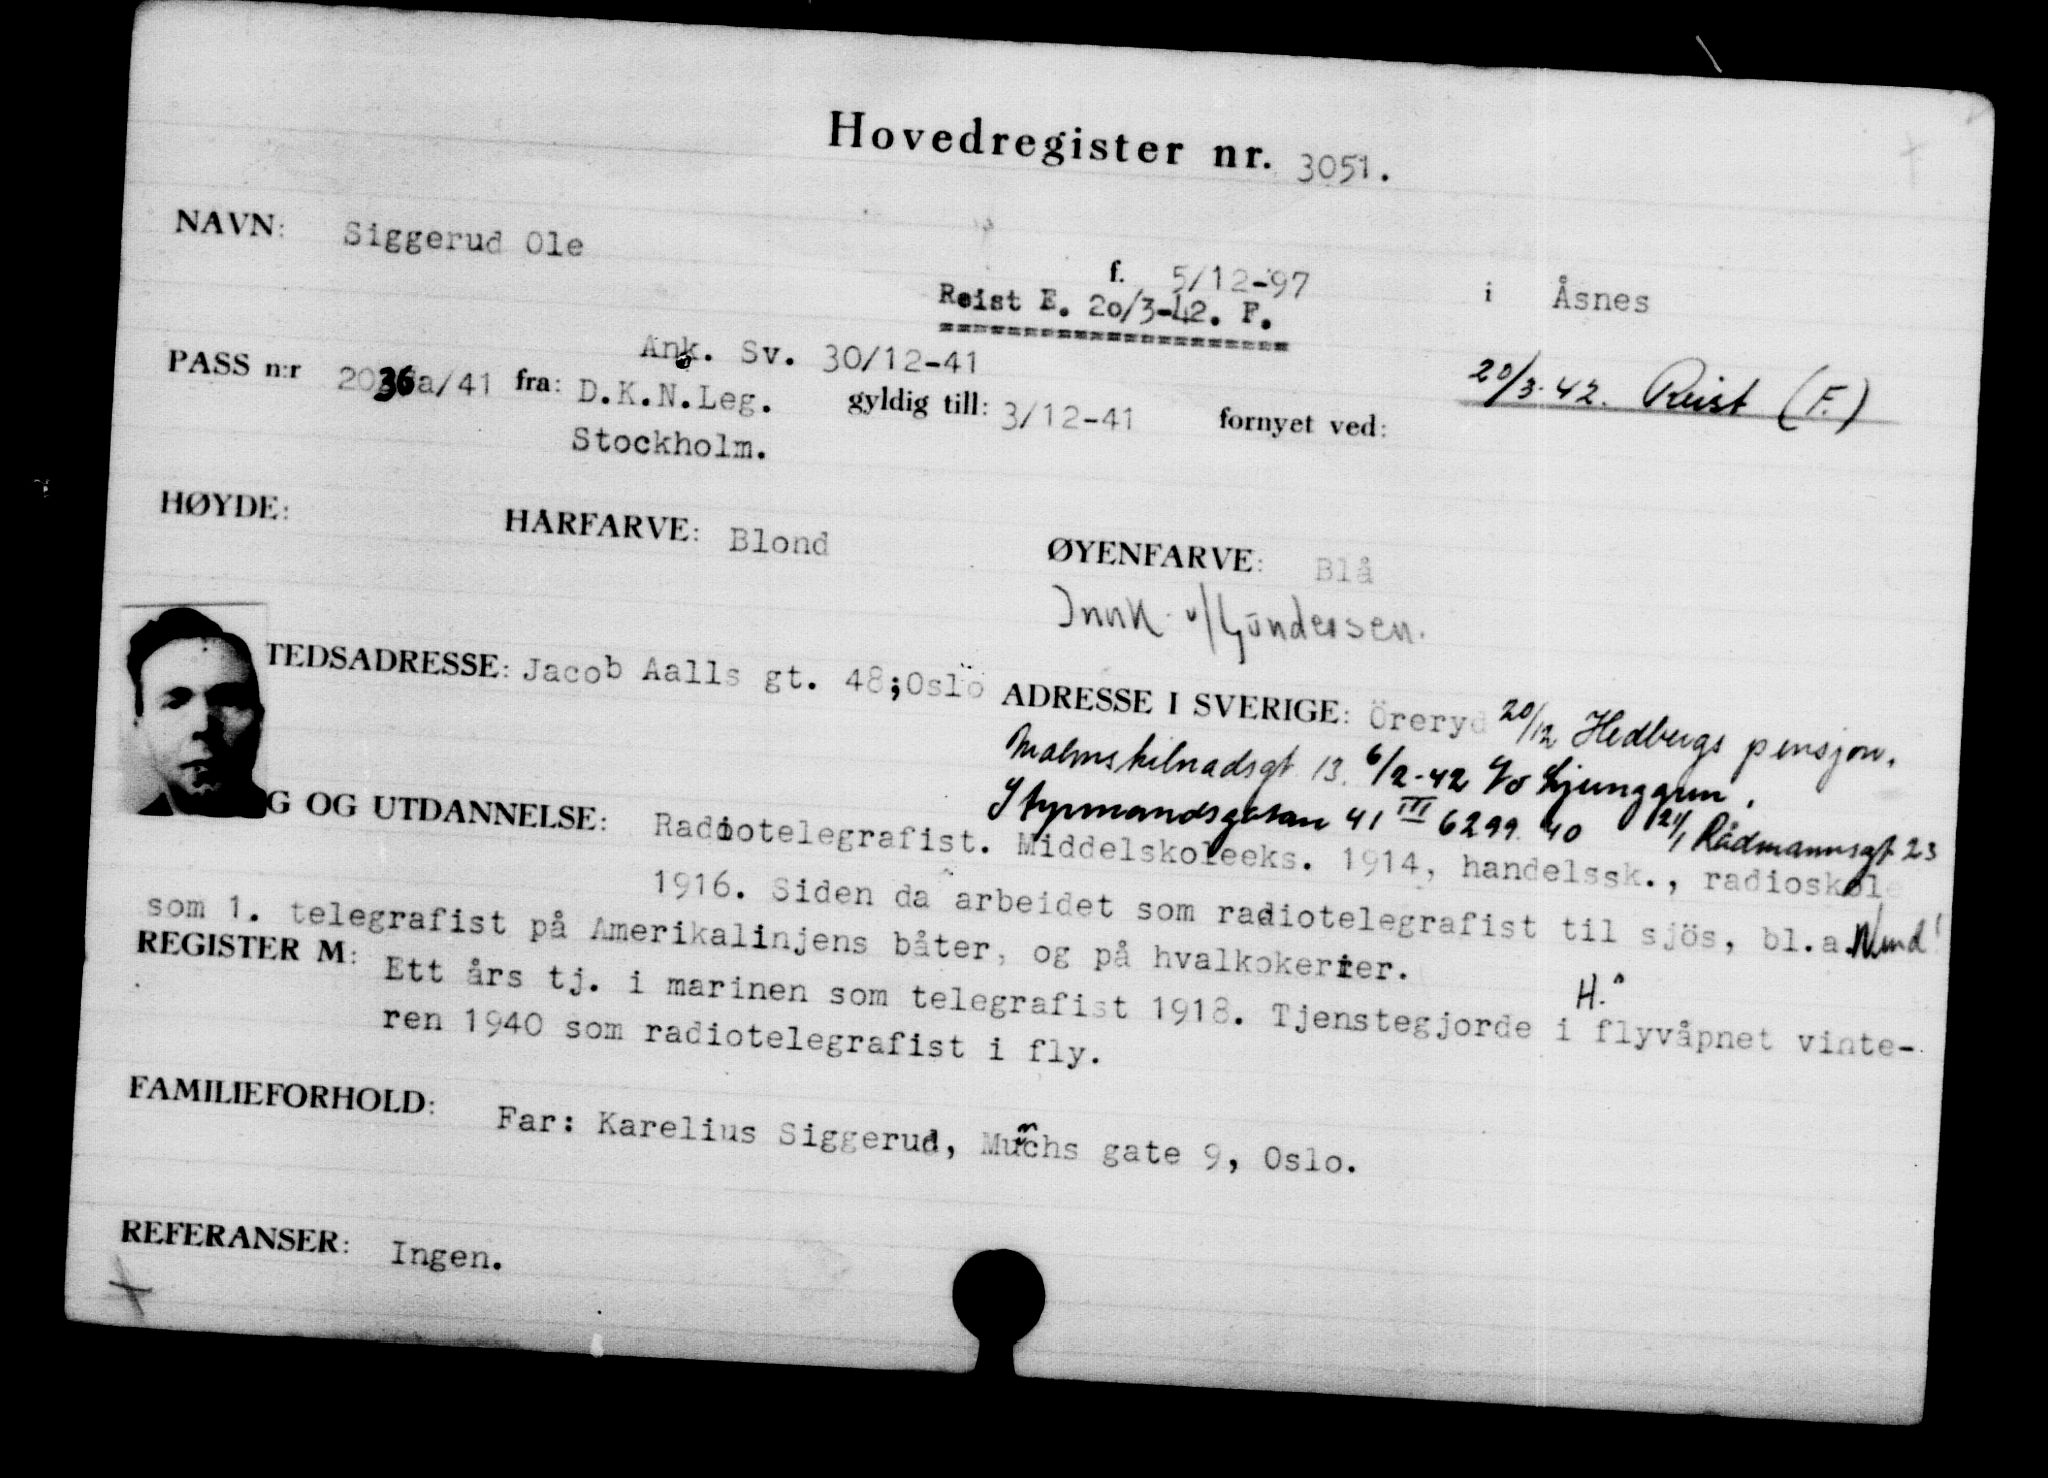 Hovedregister nr. 3051.
NAVN: Siggerud Ole
f. 5/12-97 i Åsnes
Reist E. 20/3-42. F.
Ank. Sv. 30/12-41
20/3-42. Reist (F.)
PASS n:r 2036a/41 fra: D.K.N.Leg. gyldig till: 3/12-41 fornyet ved:
Stockholm.
HØYDE: HÅRFARVE: Blond ØYENFARVE: Blå
Innk. v/Gundersen.
TEDSADRESSE: Jacob Aalls gt. 48;Oslo
ADRESSE I SVERIGE: Öreryd 20/12 Hedbergs pensjon.
Malmskilnadsgt 13. 6/2-42 c/o Ljunggren,
Styrmandsgatan 41 III 6299 40 21/1 Rådmannsgt 23
G OG UTDANNELSE: Radiotelegrafist. Middelskoleeks. 1914, handelssk., radioskole
1916. Siden da arbeidet som radiotelegrafist til sjös, bl.a.
som 1. telegrafist på Amerikalinjens båter, og på hvalkokerier.
H.
REGISTER M: Ett års tj. i marinen som telegrafist 1918. Tjenstegjorde i flyvåpnet vinte-
ren 1940 som radiotelegrafist i fly.
FAMILIEFORHOLD: Far: Karelius Siggerud, Munchs gate 9, Oslo.
REFERANSER: Ingen.